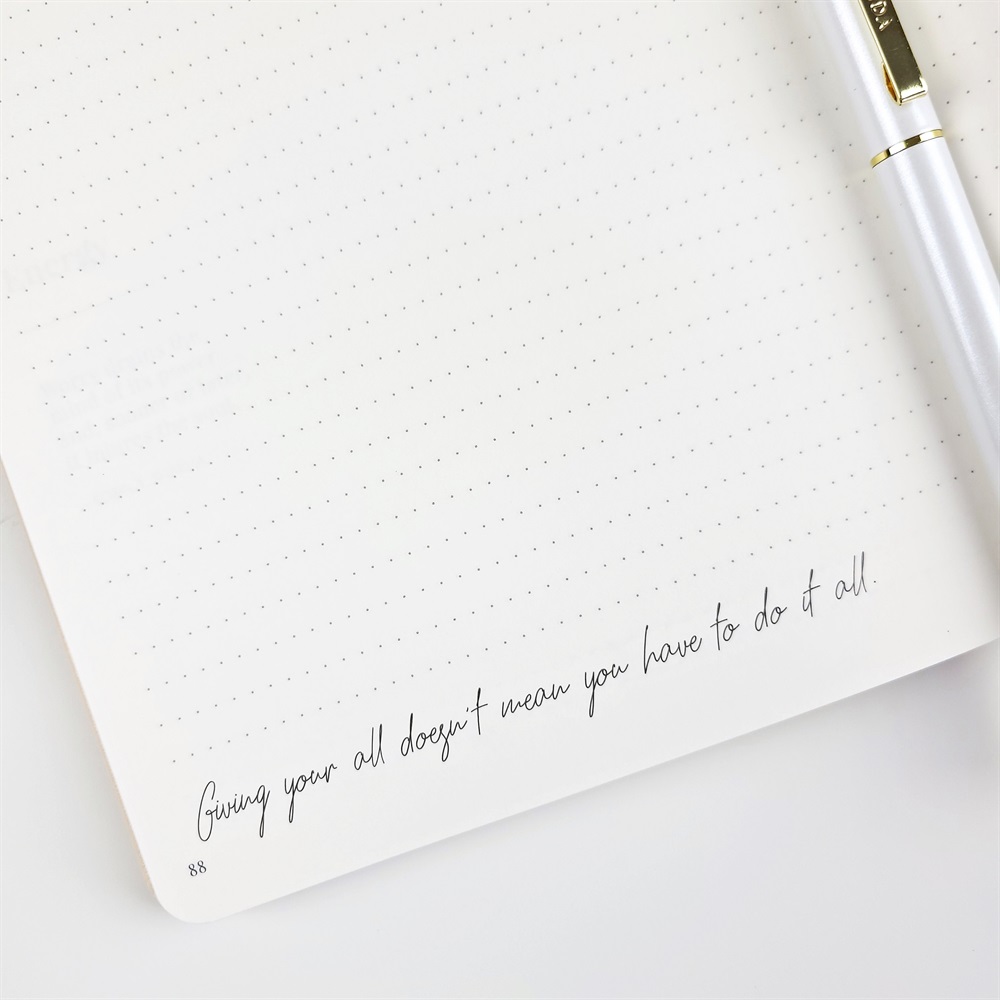 Giving your all doesn't mean you have to do it all.
88